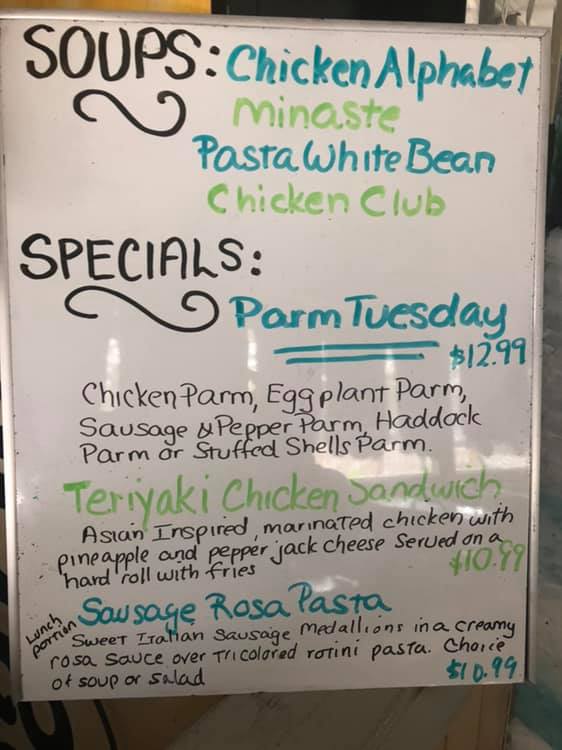 SOUPS: Chicken Alphabet
minaste
Pasta White Bean
Chicken Club
SPECIALS:
Parm Tuesday
$12.99
Chicken Parm, Eggplant Parm,
Sausage & Pepper Parm, Haddock
Parm or Stuffed Shells Parm.
Teriyaki Chicken Sandwich
Asian Inspired, marinated chicken with
pineapple and pepper jack cheese served on a
hard roll with fries
$10.99
Lunch
portion
Sausage Rosa Pasta
Sweet Italian Sausage Medallions in a creamy
rosa sauce over tricolored rotini pasta. Choice
of soup or salad
$10.99